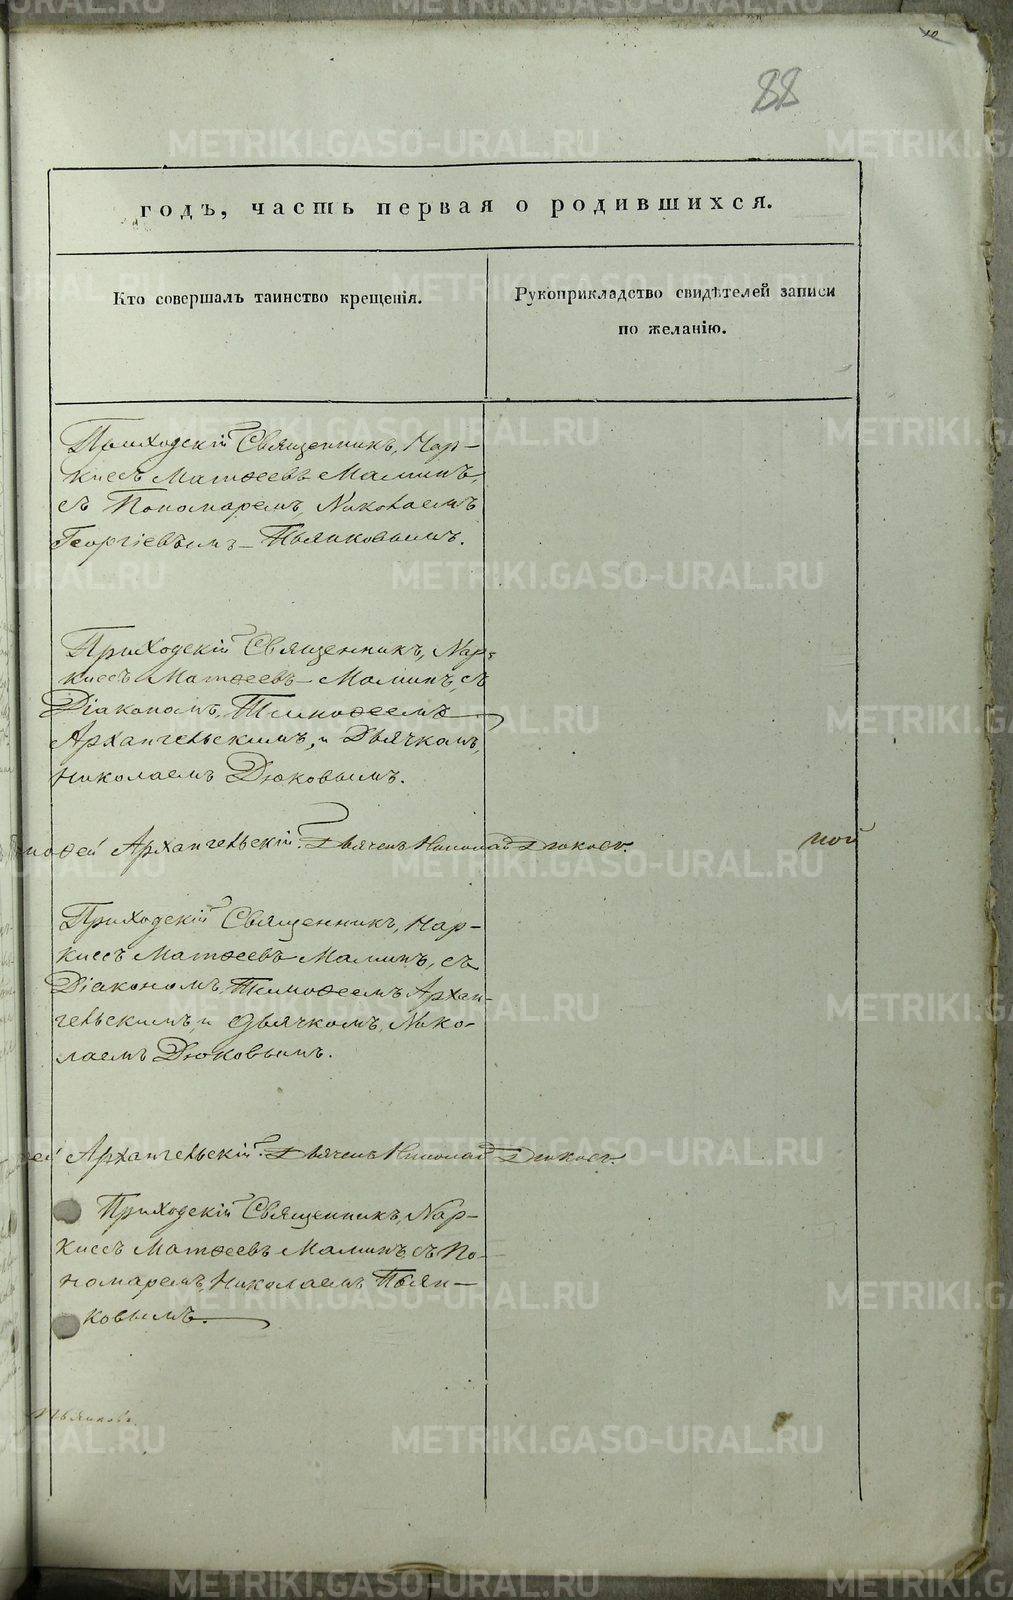 10
88
годъ, часть первая о родившихся.
Кто совершалъ таинство крещенія.
Рукоприкладство свидѣтелей записи
по желанію.
Приходскій Священникъ, Нар-
киссъ Матѳеевъ Маминъ,
съ Пономаремъ, Николаемъ
Георгіевымъ Пьянковымъ.
Приходскій Священникъ, Нар-
киссъ Матѳеевъ Маминъ, съ
Діакономъ, Тимоѳеемъ
Архангельскимъ, и Дьячкомъ,
Николаемъ Дюковымъ.
моѳей Архангельскій. Дьячекъ Николай Дюковъ.
ной
Приходскій Священникъ, Нар-
киссъ Матѳеевъ Маминъ, съ
Діакономъ, Тимоѳеемъ Архан-
гельскимъ, и дьячкомъ, Нико-
лаемъ Дюковымъ.
ей Архангельскій. Дьячекъ Николай Дюковъ.
Приходскій Священникъ, Нар-
киссъ Матѳеевъ Маминъ, съ По-
номаремъ, Николаемъ Пьян-
ковымъ.
Пьянковъ.
METRIKI.GASO-URAL.RU